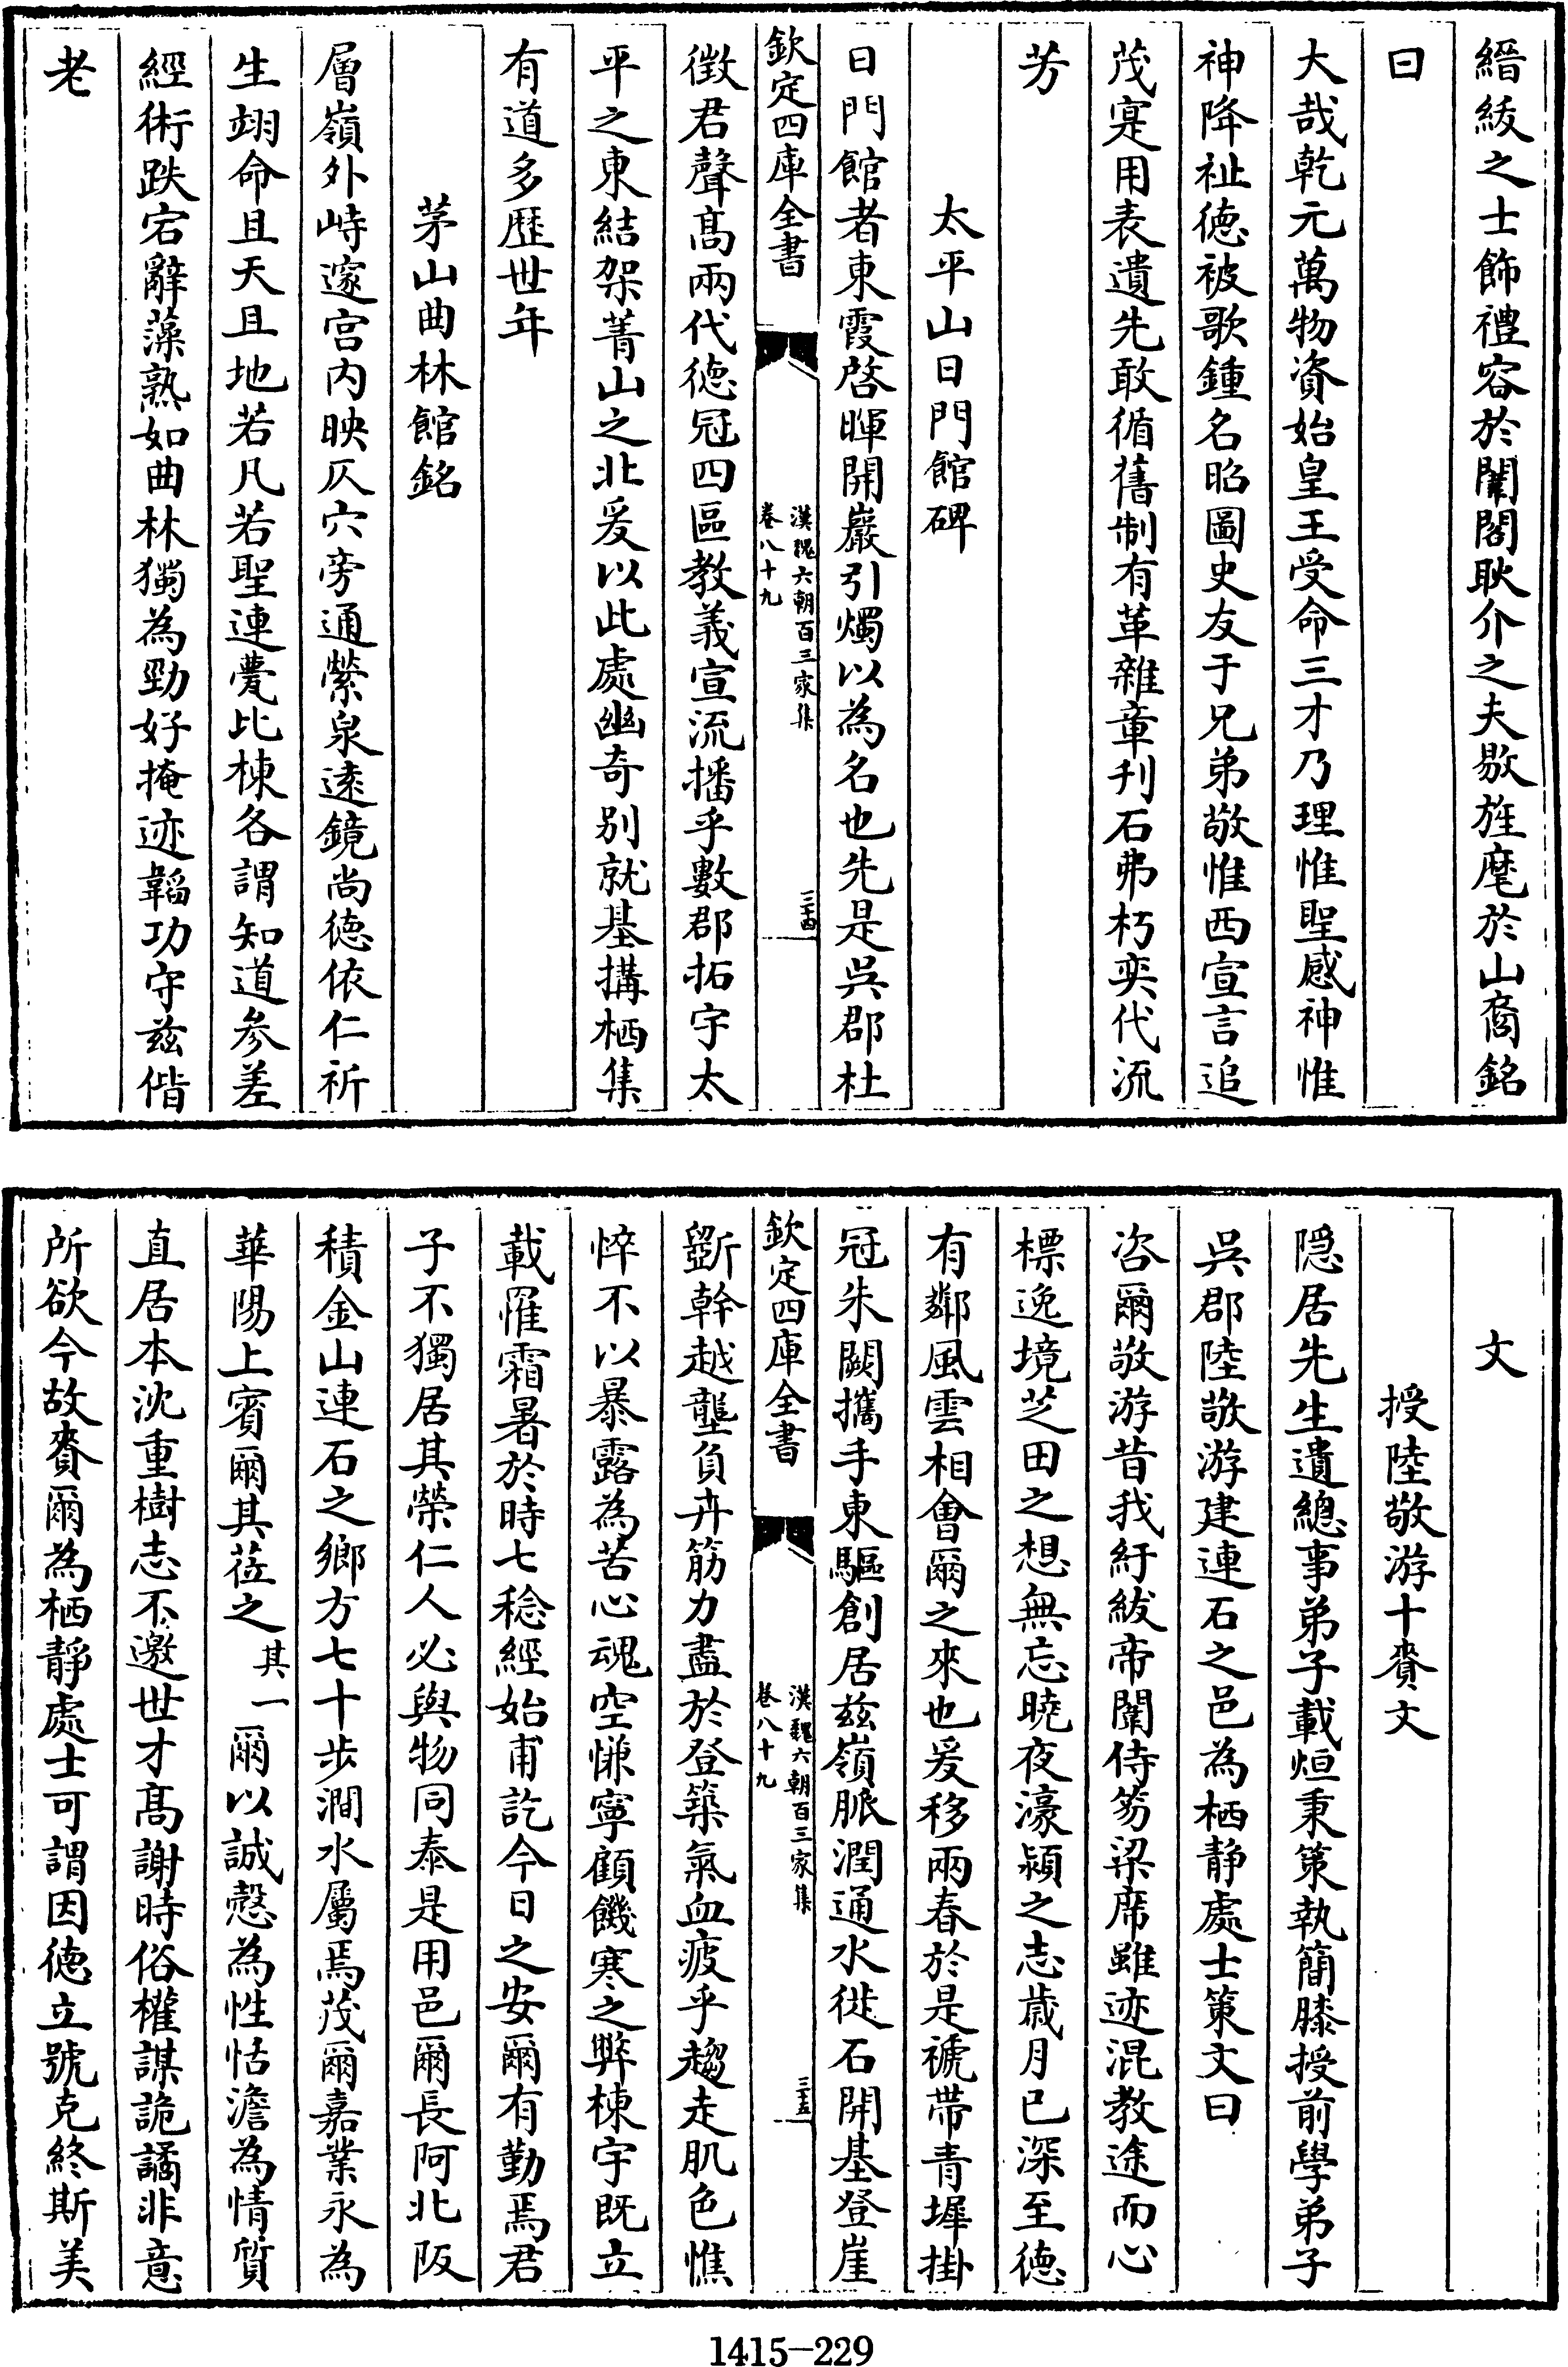 縉綏之士飾禮容於闈閤耿介之夫敭旌麾於山裔銘
曰
大哉乾元萬物資始皇王受命三才乃理惟聖感神惟
神降祉徳被歌鍾名昭圖史友于兄弟敬惟西宣言追
茂寔用表遺先敢循舊制有革雜章刋石弗朽奕代流
芳
太平山日門館碑
日門館者東霞啓暉開巖引燭以為名也先是吳郡杜
欽定四庫全書
漢魏六朝百三家集
卷八十九
三十四
徴君聲髙兩代徳冠四區教義宣流播乎數郡拓宇太
平之東結架菁山之北爰以此處幽奇别就基搆栖集
有道多歴世年
茅山曲林館銘
層嶺外峙邃宫内映仄穴旁通縈泉遠鏡尚徳依仁祈
生翊命且天且地若凡若聖連甍比棟各謂知道參差
經術跌宕辭藻孰如曲林獨為勁好掩迹韜功守兹偕
老
文
授陸敬游十賚文
隠居先生遺總事弟子載烜秉策執簡膝授前學弟子
吳郡陸敬游建連石之邑為栖静處士策文曰
咨爾敬游昔我紆紱帝闈侍笏梁席雖迹混教途而心
標逸境芝田之想無忘曉夜濠潁之志歳月已深至徳
有鄰風雲相會爾之來也爰移兩春於是褫帶青墀掛
冠朱闕攜手東驅創居兹嶺脈潤通水徙石開基登崖
欽定四庫全書
漢魏六朝百三家集
卷八十九
三十五
斵幹越壟負卉筋力盡於登築氣血疲乎趨走肌色憔
悴不以暴露為苦心魂空慊寧顧饑寒之弊棟宇既立
載罹霜暑於時七稔經始甫訖今日之安爾有勤焉君
子不獨居其榮仁人必與物同泰是用邑爾長阿北阪
積金山連石之鄉方七十步澗水屬焉茂爾嘉業永為
華陽上賓爾其莅之其一爾以誠慤為性恬澹為情質
直居本沈重樹志不邀世才髙謝時俗權謀詭譎非意
所欲今故賚爾為栖靜處士可謂因徳立號克終斯美
1415-229